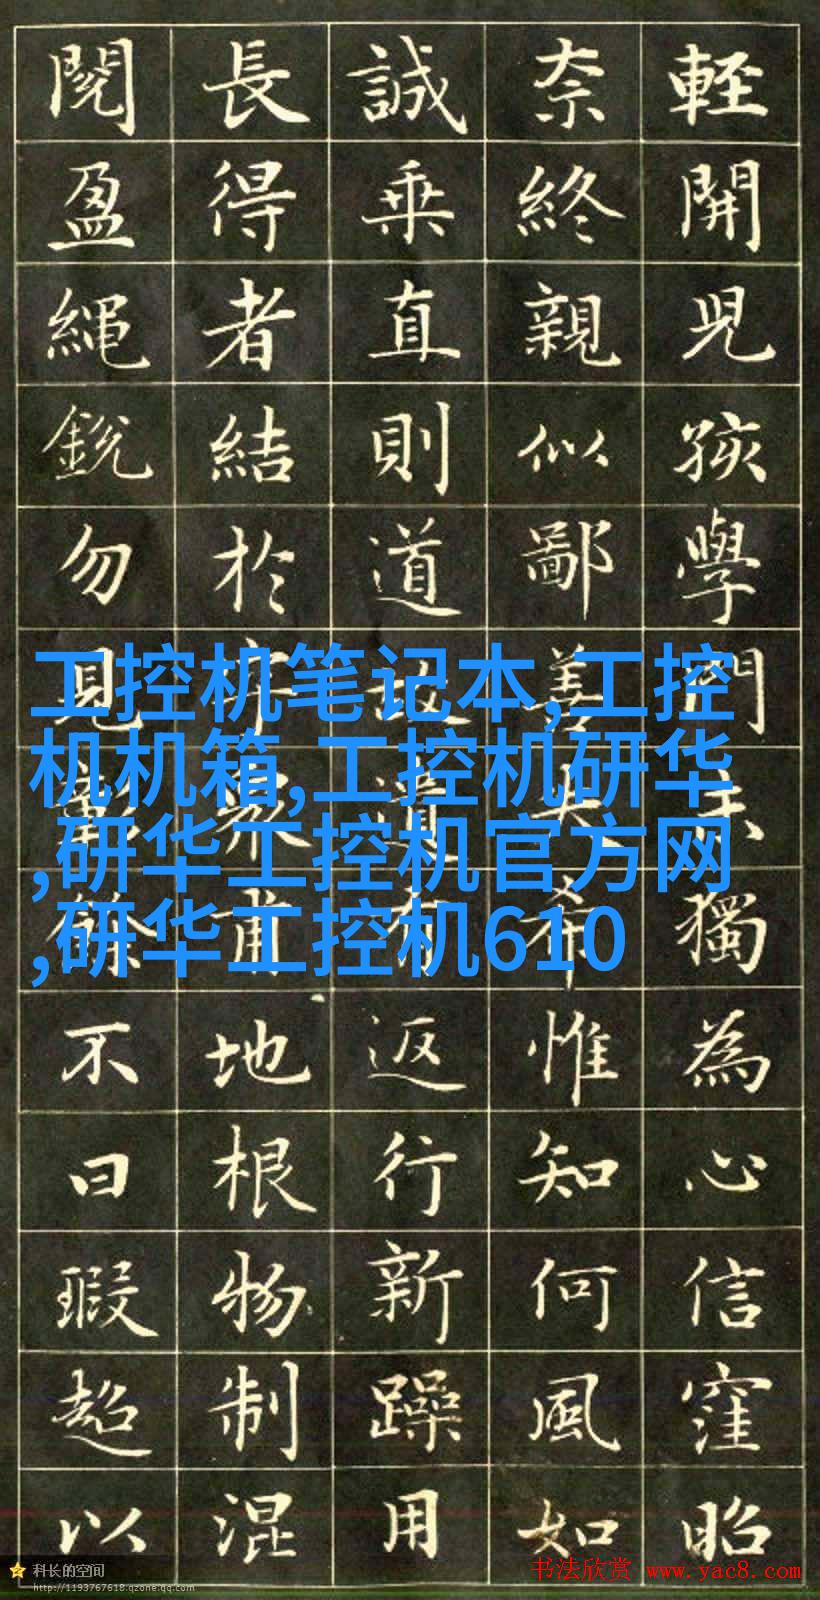 閱 長 誠 奈 輊
盈 得 乘 終 開
繩 者 直 親 兒
銳 結 則 似 孩
勿 於 道 鄙 學
見 故 善 門
遺
餘 甫 有 希 獨
不 地 返 惟 為
曰 根 行 知 心
瑕 物 新 何 信
超 制 躁 風 窪
以 混 用 如 昭
工控机笔记本,工控
机机箱,工控机研华
,研华工控机官方网
,研华工控机610
科长的空间
http://1193767618.qzone.qq.com
书法欣赏 www.yac8.com